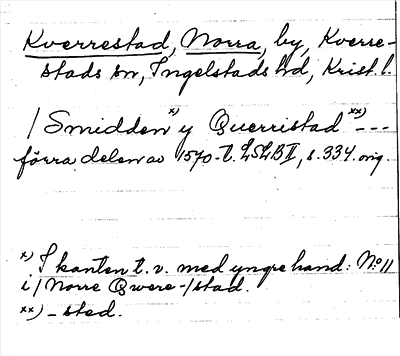 Kverrestad, Norra, by, Kverre-
stads sn, Ingelstads hd, Krist. l.
/ Smidden x) y Querristad xx) ---
förra delen av 1570-t. LSLB II, s. 334. orig.
x) I kanten t. v. med yngre hand: No 11
i / Norre Qwere-/stad.
xx) – sted.